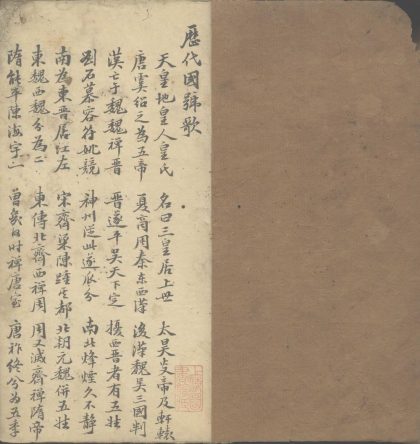 歷代國號歌
天皇地皇人皇氏 名曰三皇居上世 太昊炎帝及軒轅
唐虞紹之為五帝 夏商周秦東西漢 後漢魏吳三國判
漢亡于魏魏禪晉 晉遂平吳天下定 擾西晉者有五姓
劉石慕容苻姚競 神州從此遂瓜分 南北烽煙久不靜
南為東晉居江左 宋齊梁陳踵其都 北朝元魏併五姓
東魏西魏分為二 東傳北齊西禪周 周又滅齊禪隋帝
隋能平陳海宇一 曾幾何時禪唐室 唐祚終分為五季